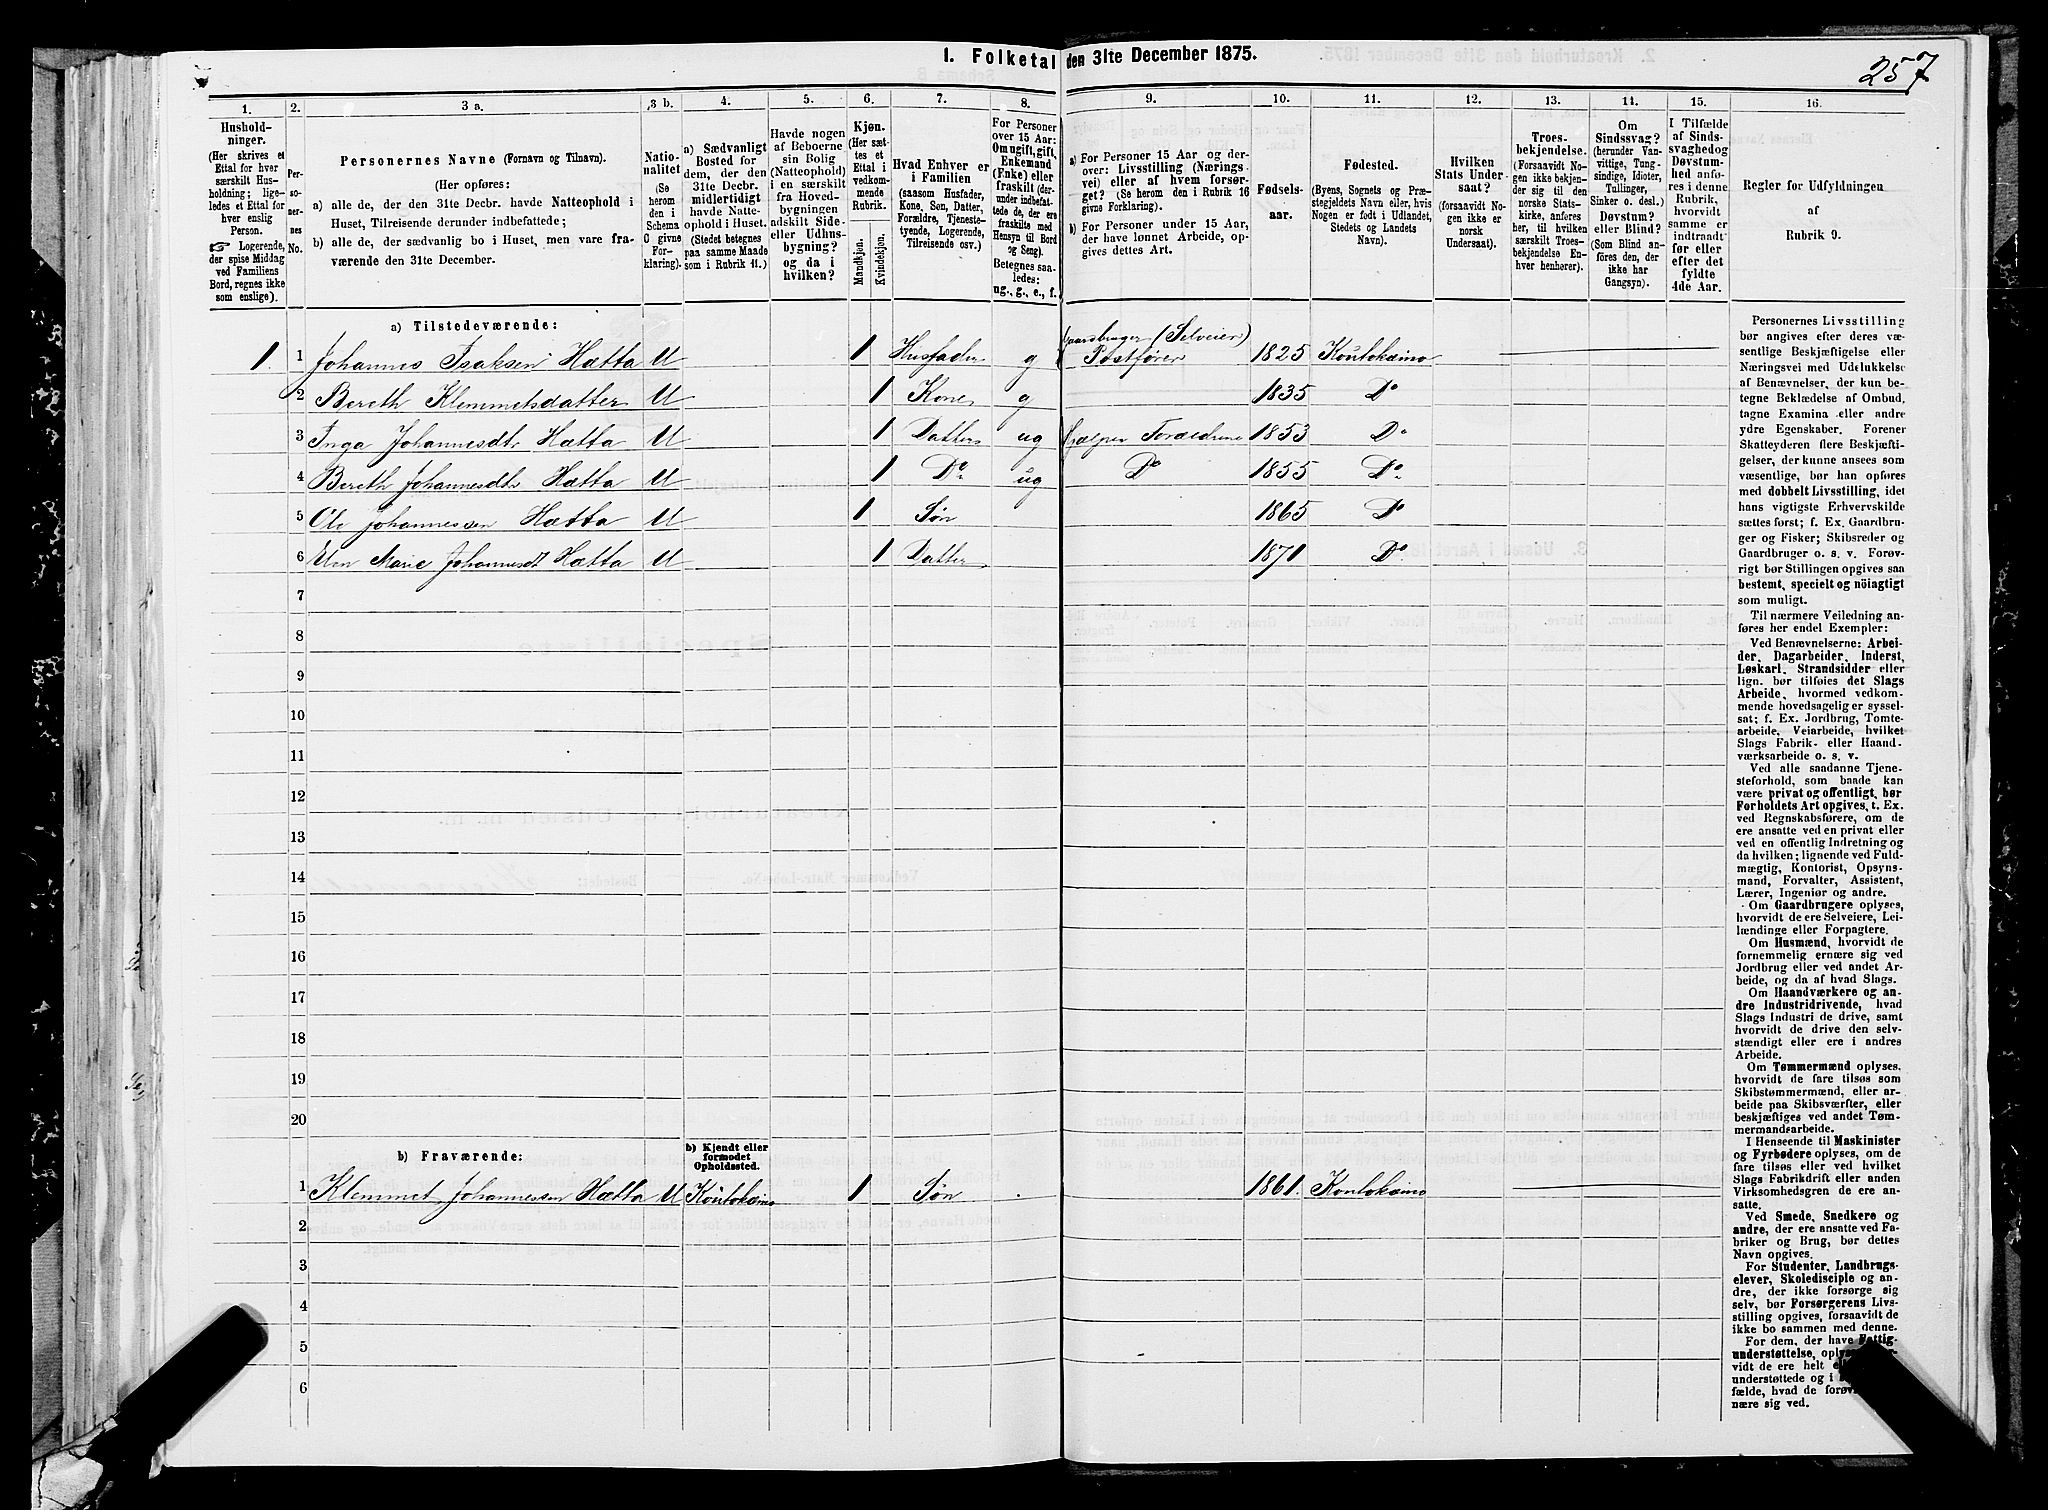 1. Folketal den 31te December 1875.
257
1.
2.
3 a.
3 b.
4.
5.
6.
7.
8.
9.
10.
11.
12.
13.
14.
15.
16.
Hushold-
ninger.
(Her skrives et
Ettal for hver
særskilt Hus-
holdning; lige-
ledes et Ettal for
hver enslig
Person.
☞ Logerende,
der spise Middag
ved Familiens
Bord, regnes ikke
som enslige).
Per-
so-
ner-
nes
No.
Personernes Navne (Fornavn og Tilnavn).
(Her opføres:
a) alle de, der den 31te Decbr. havde Natteophold i
Huset, Tilreisende derunder indbefattede;
b) alle de, der sædvanlig bo i Huset, men vare fra-
værende den 31te December.
Natio-
nalitet
(Se
herom
den i
Schema
C givne
For-
klaring).
a) Sædvanligt
Bosted for
dem, der den
31te Decbr.
midlertidigt
havde Natte-
ophold i Huset.
(Stedet betegnes
paa samme Maade
som i Rubrik 11.)
Havde nogen
af Beboerne
sin Bolig
(Natteophold)
i en særskilt
fra Hoved-
bygningen
adskilt Side-
eller Udhus-
bygning?
og da i
hvilken?
Kjøn.
(Her sæt-
tes et
Ettal i
vedkom-
mende
Rubrik.
Mandkjøn.
Kvindekjøn.
Hvad Enhver er
i Familien
(saasom Husfader,
Kone, Søn, Datter,
Forældre, Tjeneste-
tyende, Logerende,
Tilreisende osv.)
For Personer
over 15 Aar:
Om ugift, gift,
Enkemand
(Enke) eller
fraskilt (der-
under indbefat-
tede de, der ere
fraskilte med
Hensyn til Bord
og Seng).
Betegnes saa-
ledes:
ug., g., e., f.
a) For Personer 15 Aar og der-
over: Livsstilling (Nærings-
vei) eller af hvem forsør-
get? (Se herom den i Rubrik 16
givne Forklaring).
b) For Personer under 15 Aar,
der have lønnet Arbeide, op-
gives dettes Art.
Fødsels-
aar.
Fødested.
(Byens, Sognets og Præ-
stegjeldets Navn eller, hvis
Nogen er født i Udlandet,
Stedets og Landets
Navn).
Hvilken
Stats Under-
saat?
(forsaavidt No-
gen ikke er
norsk
Undersaat).
Troes-
bekjendelse.
(Forsaavidt No-
gen ikke bekjen-
der sig til den
norske Stats-
kirke, anføres
her, til hvilken
særskilt Troes-
bekjendelse En-
hver henhører).
Om
Sindssvag?
(herunder Van-
vittige, Tung-
sindige, Idioter,
Tullinger,
Sinker o. desl.)
Døvstum?
eller Blind?
(Som Blind an-
føres den, der
ikke har
Gangsyn).
I Tilfælde
af Sinds-
svaghed og
Døvstum-
hed anfø-
res i denne
Rubrik,
hvorvidt
samme er
indtraadt
før eller
efter det
fyldte
4de Aar.
Regler for Udfyldningen
af
Rubrik 9.
a) Tilstedeværende:
1. 1 Johannes Isaksen Hætta U 1 Husfader g Gaardbruger (Selveier) Postfører 1825 Koutokæino
2 Bereth Klemmetsdatter U 1 Kone g 1835 Do
3 Inga Johannesdtr Hætta U 1 Datter ug Hjælper Forældrene 1853 Do
4 Bereth Johannesdtr Hætta U 1 Do ug Do 1855 Do
5 Ole Johannessen Hætta U 1 Søn 1865 Do
6 Elen Marie Johannesdt Hætta U 1 Datter 1871 Do
7
8
9
10
11
12
13
14
15
16
17
18
19
20
b) Fraværende:
b) Kjendt eller
formodet
Opholdssted.
1 Klemmet Johannessen Hætta U Koutokæino 1 Søn 1861. Koutokæino
2
3
4
5
6
Personernes Livsstilling
bør angives efter deres væ-
sentlige Beskjæftigelse eller
Næringsvei med Udelukkelse
af Benævnelser, der kun be-
tegne Beklædelse af Ombud,
tagne Examina eller andre
ydre Egenskaber. Forener
Skatteyderen flere Beskjæfti-
gelser, der kunne ansees som
væsentlige, bør han opføres
med dobbelt Livsstilling, idet
hans vigtigste Erhvervskilde
sættes først; f. Ex. Gaardbru-
ger og Fisker; Skibsreder og
Gaardbruger o. s. v. Forøv-
rigt bør Stillingen opgives saa
bestemt, specielt og nöiagtigt
som muligt.
Til nærmere Veiledning an-
føres her endel Exempler:
Ved Benævnelserne: Arbei-
der, Dagarbeider, Inderst,
Løskarl, Strandsidder eller
lign. bør tilføies det Slags
Arbeide, hvormed vedkom-
mende hovedsagelig er syssel-
sat; f. Ex. Jordbrug, Tomte-
arbeide, Veiarbeide, hvilket
Slags Fabrik- eller Haand-
værksarbeide o. s. v.
Ved alle saadanne Tjene-
steforhold, som baade kan
være privat og offentligt, bør
Forholdets Art opgives, t. Ex.
ved Regnskabsførere, om de
ere ansatte ved en privat eller
ved en offentlig Indretning og
da hvilken; lignende ved Fuld-
mægtig, Kontorist, Opsyns-
mand, Forvalter, Assistent,
Lærer, Ingeniør og andre.
Om Gaardbrugere oplyses,
hvorvidt de ere Selveiere, Lei-
lændinge eller Forpagtere.
Om Husmænd, hvorvidt de
fornemmelig ernære sig ved
Jordbrug eller ved andet Ar-
beide, og da af hvad Slags.
Om Haandværkere og an-
dre Industridrivende, hvad
Slags Industri de drive, samt
hvorvidt de drive den selv-
stændigt eller ere i andres
Arbeide.
Om Tømmermænd oplyses,
hvorvidt de fare tilsøs som
Skibstømmermænd, eller ar-
beide paa Skibsværfter, eller
beskjæftiges ved andet Tøm-
mermandsarbeide.
I Henseende til Maskinister
og Fyrbødere oplyses, om de
fare tilsøs eller ved hvilket
Slags Fabrikdrift eller anden
Virksomhedsgren de ere an-
satte.
Ved Smede, Snedkere og
andre, der ere ansatte ved Fa-
briker og Brug, bør dettes
Navn opgives.
For Studenter, Landbrugs-
elever, Skoledisciple og an-
dre, der ikke forsørge sig
selv, bør Forsørgerens Livs-
stilling opgives, forsaavidt de
ikke bo sammen med denne.
For dem, der have Fattig-
understøttelse,
vidt de ere helt
understøttede og i
fælde, hvad de
nære sig ved.